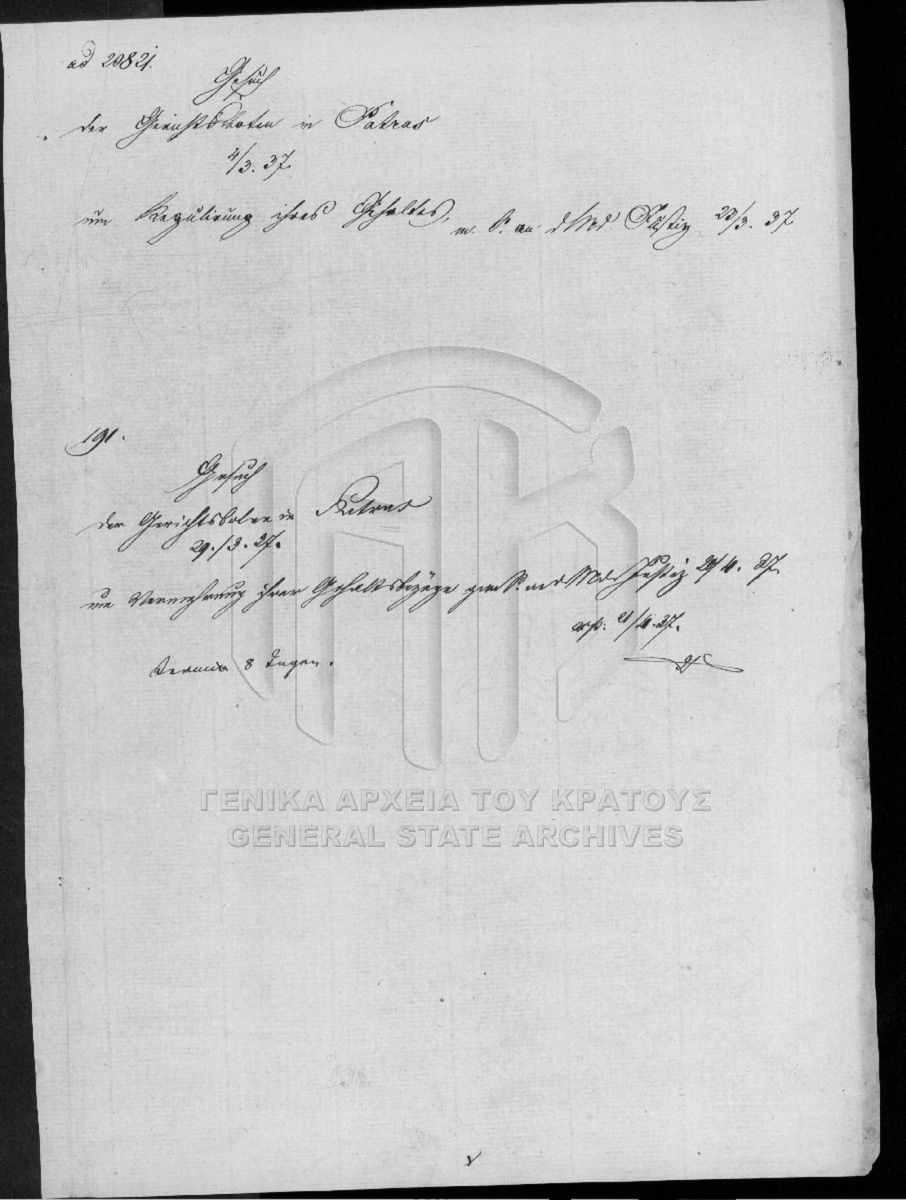 ad 20821.
Gesuch
der Gerichtsboten in Patras
4/3. 37.
um Regulirung ihres Gehaltes, m. S. an d. Md. Justiz 23/3. 37
191.
Gesuch
der Gerichtsboten in Patras
29./3. 37.
um Vermehrung ihrer Gehaltsbezüge Justiz 4. 37.
exp: 21/4. 37.
Termin 8 Tagen.
ΓΕΝΙΚΑ ΑΡΧΕΙΑ ΤΟΥ ΚΡΑΤΟΥΣ
GENERAL STATE ARCHIVES